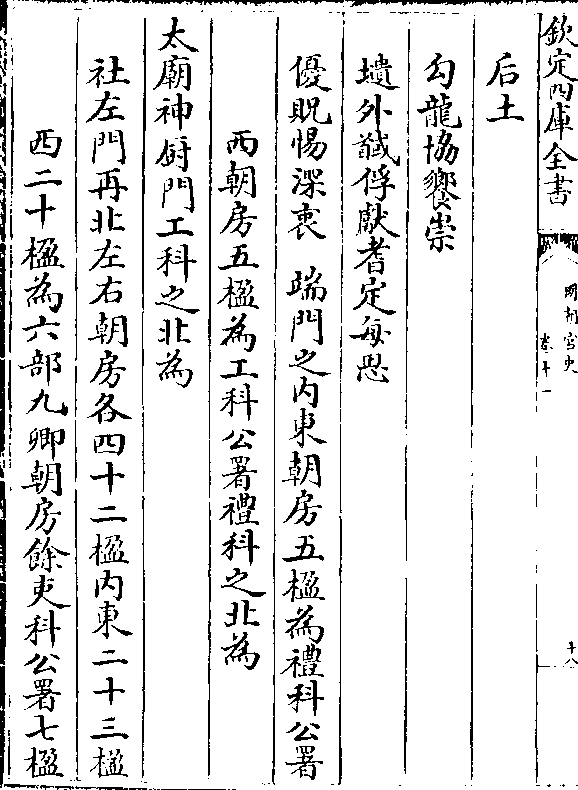 欽定四庫全書
國朝宮史
卷十一
十八
后土
勾龍協饗崇
壝外馘俘獻耆定每思
優貺惕深衷　端門之内東朝房五楹為禮科公署
西朝房五楹為工科公署禮科之北為
太廟神廚門工科之北為
社左門再北左右朝房各四十二楹内東二十三楹
西二十楹為六部九卿朝房餘吏科公署七楹